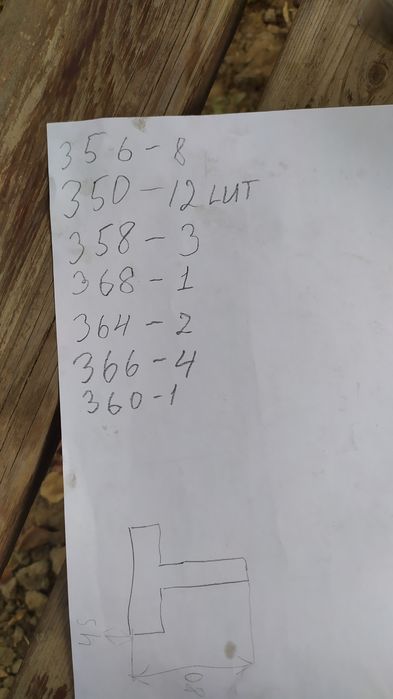 356-8
350-12 шт
358-3
368-1
364-2
366-4
360-1
45
80